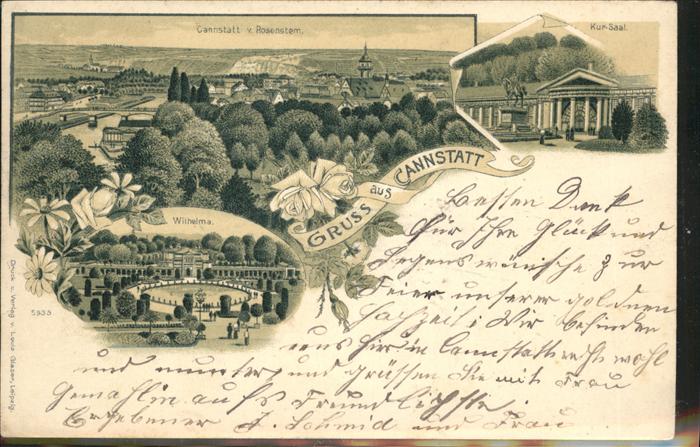 Cannstatt v. Rosenstein.
Kur-Saal.
GRUSS aus CANNSTATT
Wilhelma.
5935
Druck u. Verlag v. Louis Glaser, Leipzig.
Besten Dank
für Ihre Glück und
Segenswünsche zur
Feier unserer goldnen
Hochzeit; Wir befinden
uns hier in Cannstatt recht wohl
und munter und grüssen Sie mit Frau
Gemahlin aufs Freundlichste.
Ergebener J. Schmid und Frau